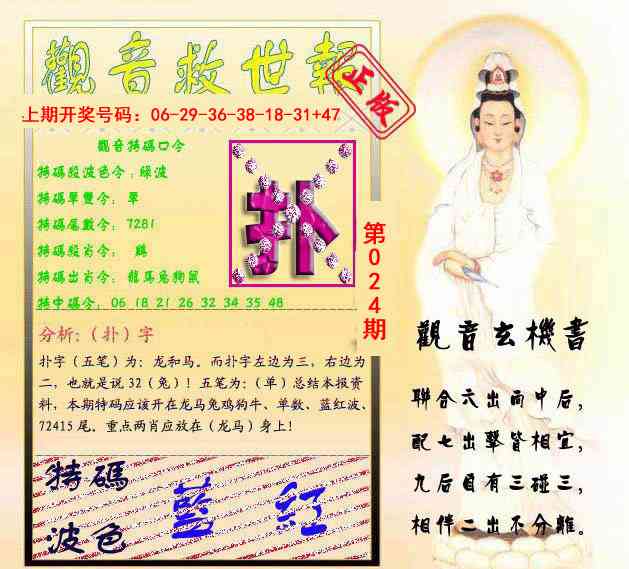 觀音救世報
正版
上期开奖号码：06-29-36-38-18-31+47
觀音特碼口令
特碼段波色令：綠波
特碼單雙令： 單
特碼尾數令： 7281
特碼段肖令： 鷄
特碼出肖令： 龍馬兔狗鼠
特中碼令：06 18 21 26 32 34 35 48
扑
第024期
分析：（扑）字
扑字（五笔）为：龙和马。而扑字左边为三，右边为
二，也就是说 32（兔）！五笔为：（单）总结本报资
料，本期特码应该开在龙马兔鸡狗牛、单数、蓝红波、
72415 尾。重点两肖应放在（龙马）身上！
特碼
波色
藍 紅
觀音玄機書
聯合六出而中后，
配七出擊皆相宜，
九后自有三碰三，
相伴二出不分離。